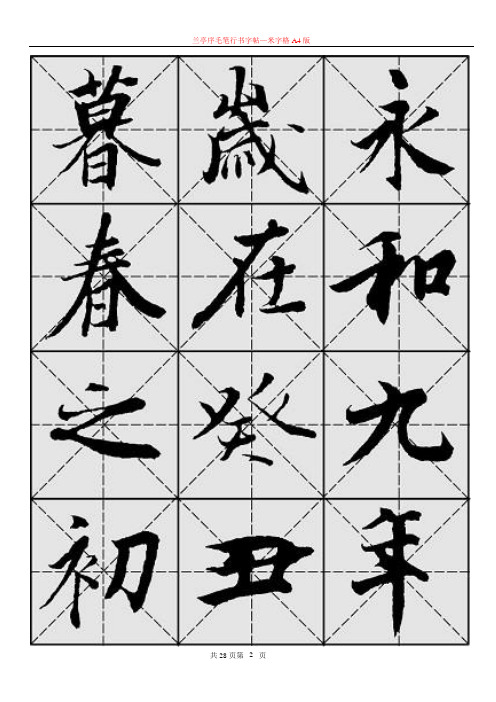 兰亭序毛笔行书字帖—米字格 A4 版
永和九年
歲在癸丑
暮春之初
共 28 页第 2 页